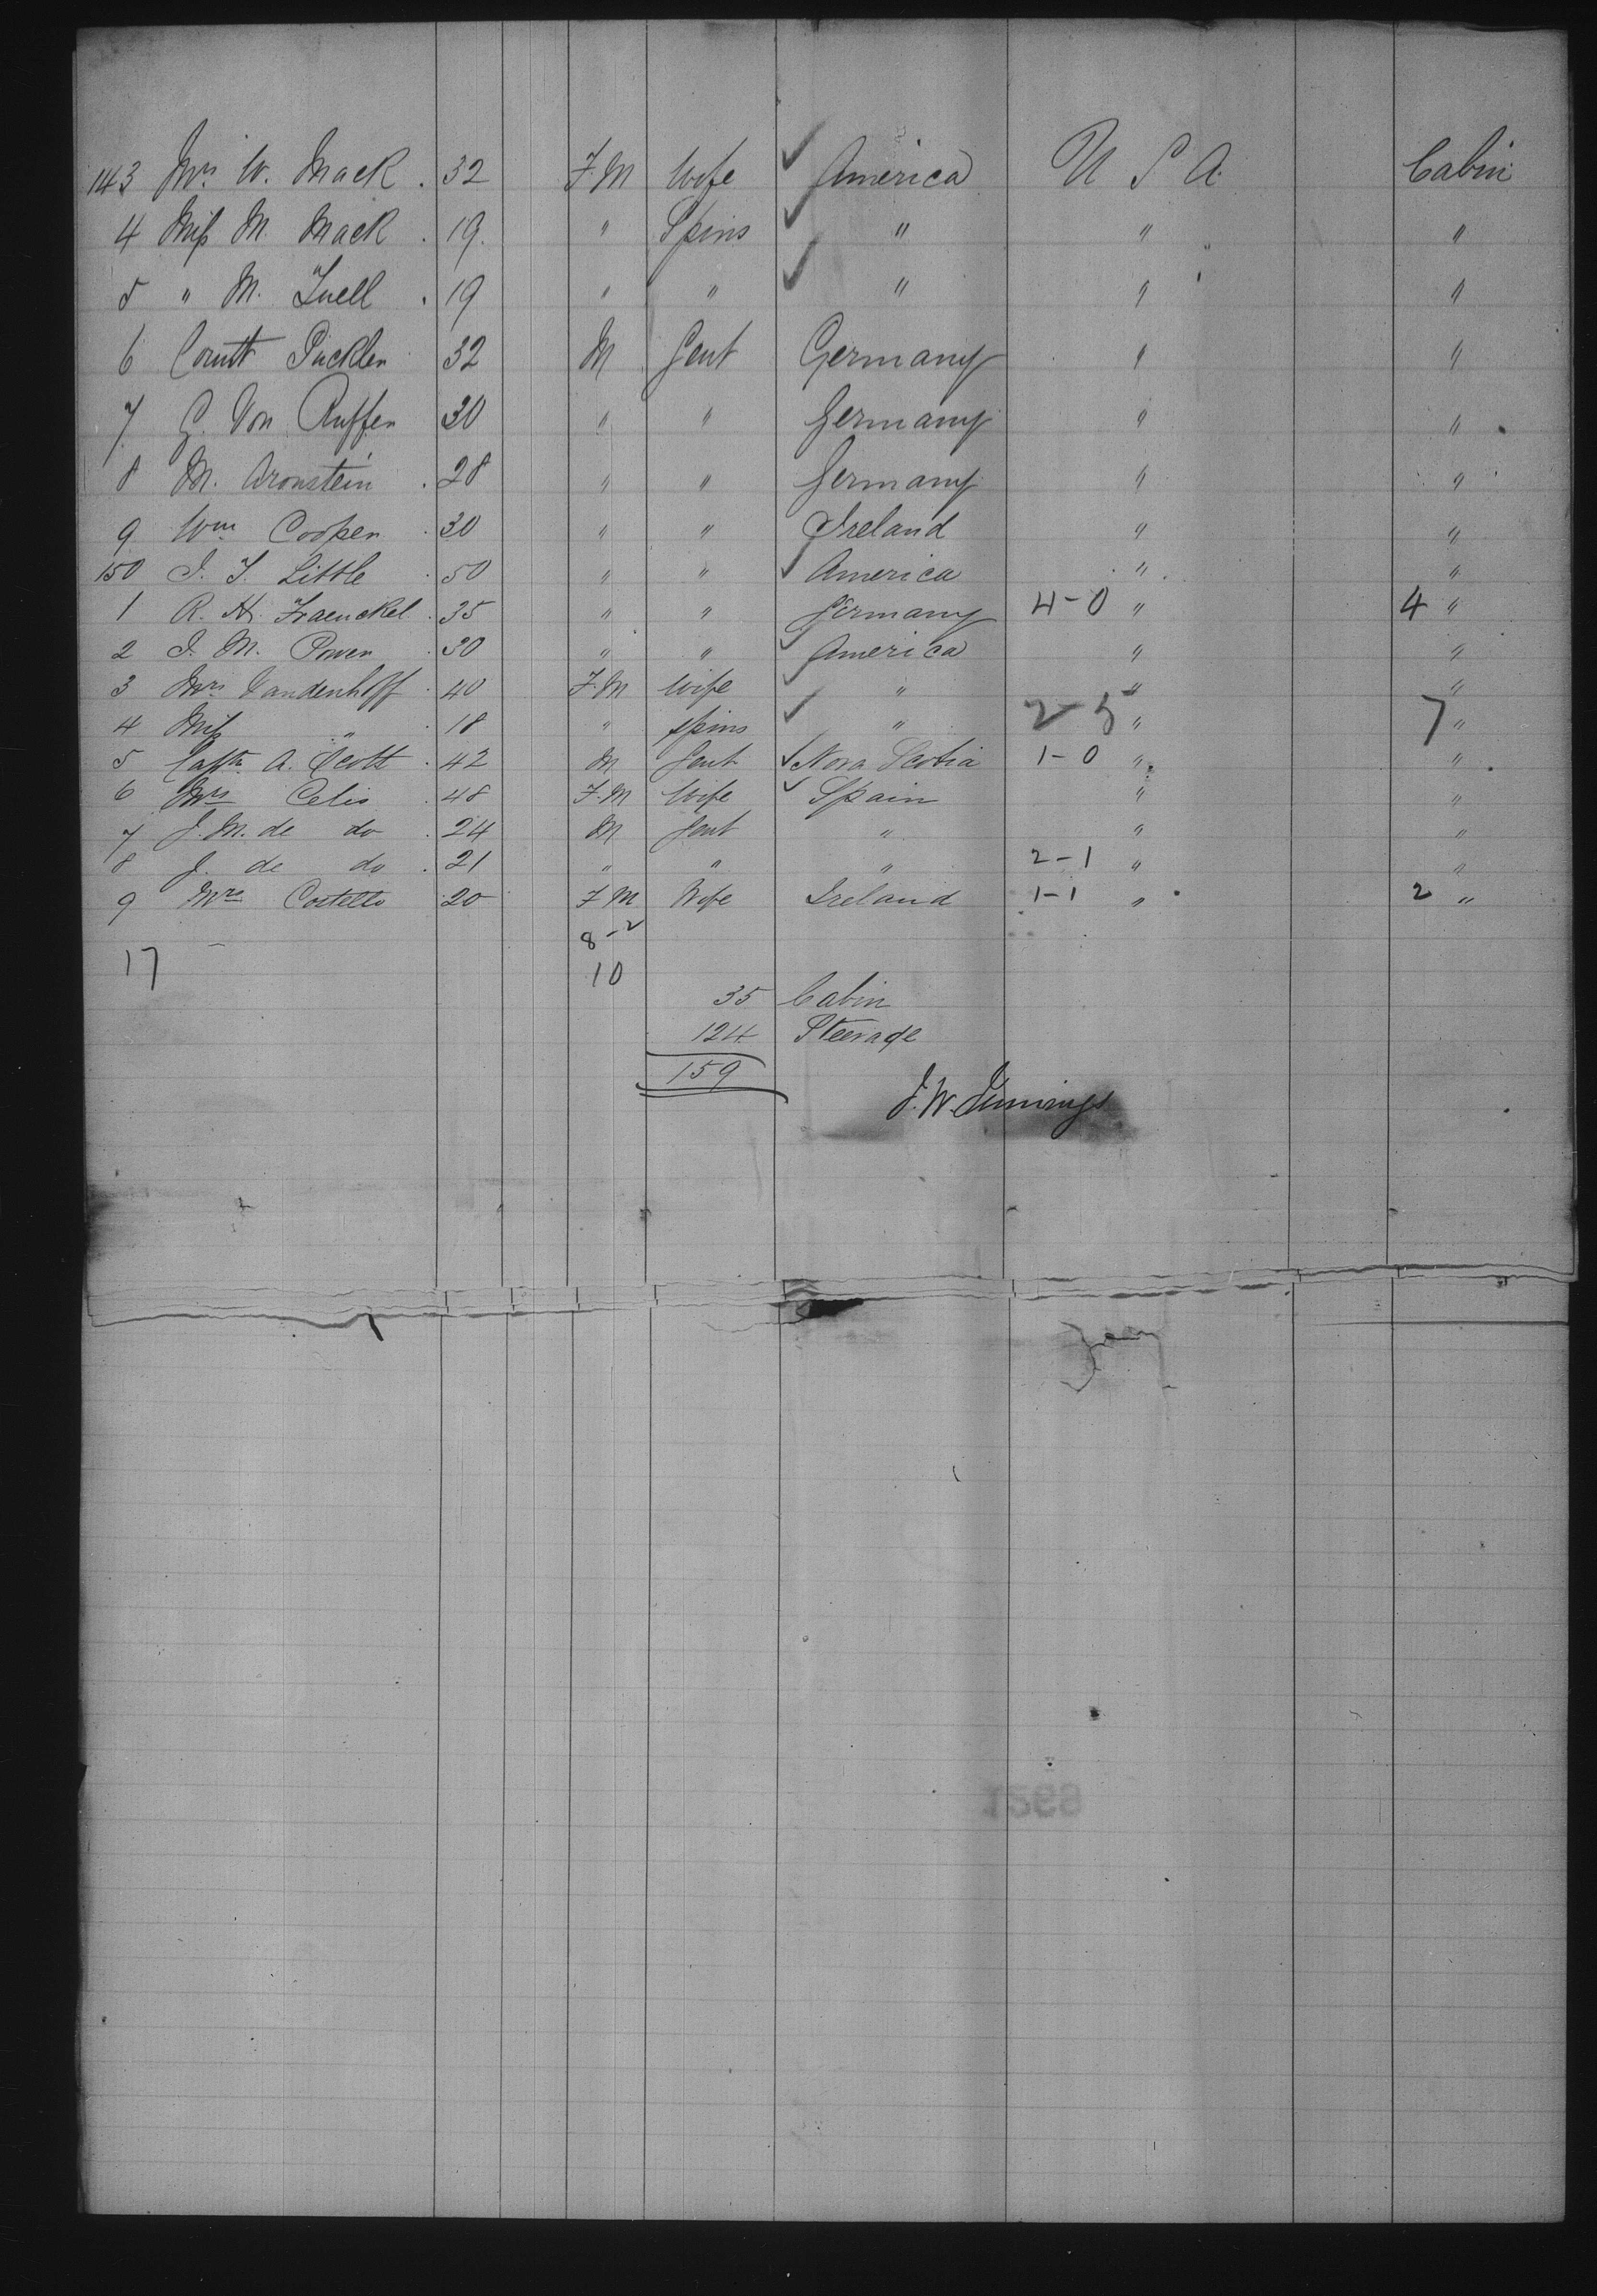 143 Mrs W. Mack . 32 F.M Wife ✓ America U S A. Cabin
4 Miss M. Mack . 19. " Spins ✓ " " "
5 " M. Tuell . 19 " " ✓ " " "
6 Countt Puckler 32 M Gent Germany " "
7 G Von Ruffer 30 " " Germany " "
8 M. Aronstein . 28 " " Germany " "
9 Wm Cooper . 30 " " Ireland " "
150 I. T. Little . 50 " " ✓ America " "
1 R. H. Fraenckel . 35 " " Germany 4-0 " 4 "
2 I. M. Power . 30 " " ✓ America " "
3 Mrs Vandenhoff . 40 F.M Wife ✓ " " "
4 Miss " . 18 " Spins ✓ " 2-5 " 7 "
5 Captn A. Scott . 42 M Gent ✓ Nova Scotia 1-0 " "
6 Mrs Celis . 48 F.M Wife ✓ Spain " "
7 J. M. de do . 24 M Gent " " "
8 J. de do . 21 " " " 2-1 " "
9 Mrs Costello . 20 F M Wife Ireland 1-1 " 2 "
8-2
17 10
35 Cabin
124 Steerage
159
J. W. Jennings